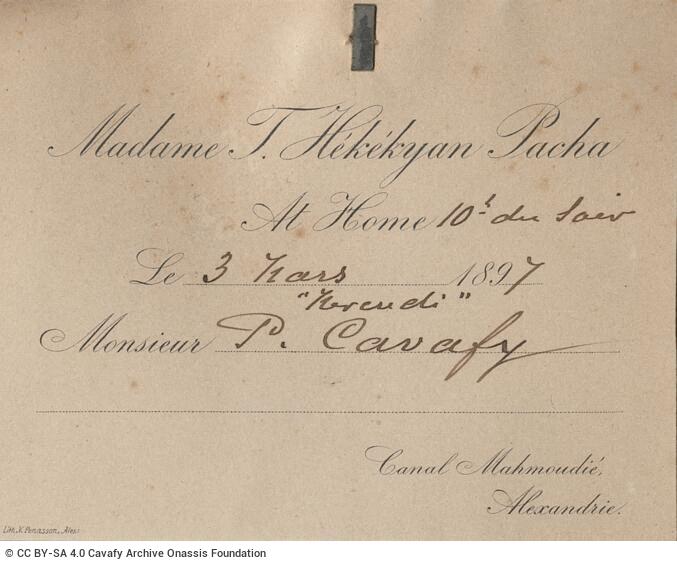 Madame T. Hékékyan Pacha
At Home 10h du Soir
Le 3 Mars 1897
"Mercredi"
Monsieur P. Cavafy
Canal Mahmoudié,
Alexandrie.
Lith. V. Penasson, Alex.
© CC BY-SA 4.0 Cavafy Archive Onassis Foundation